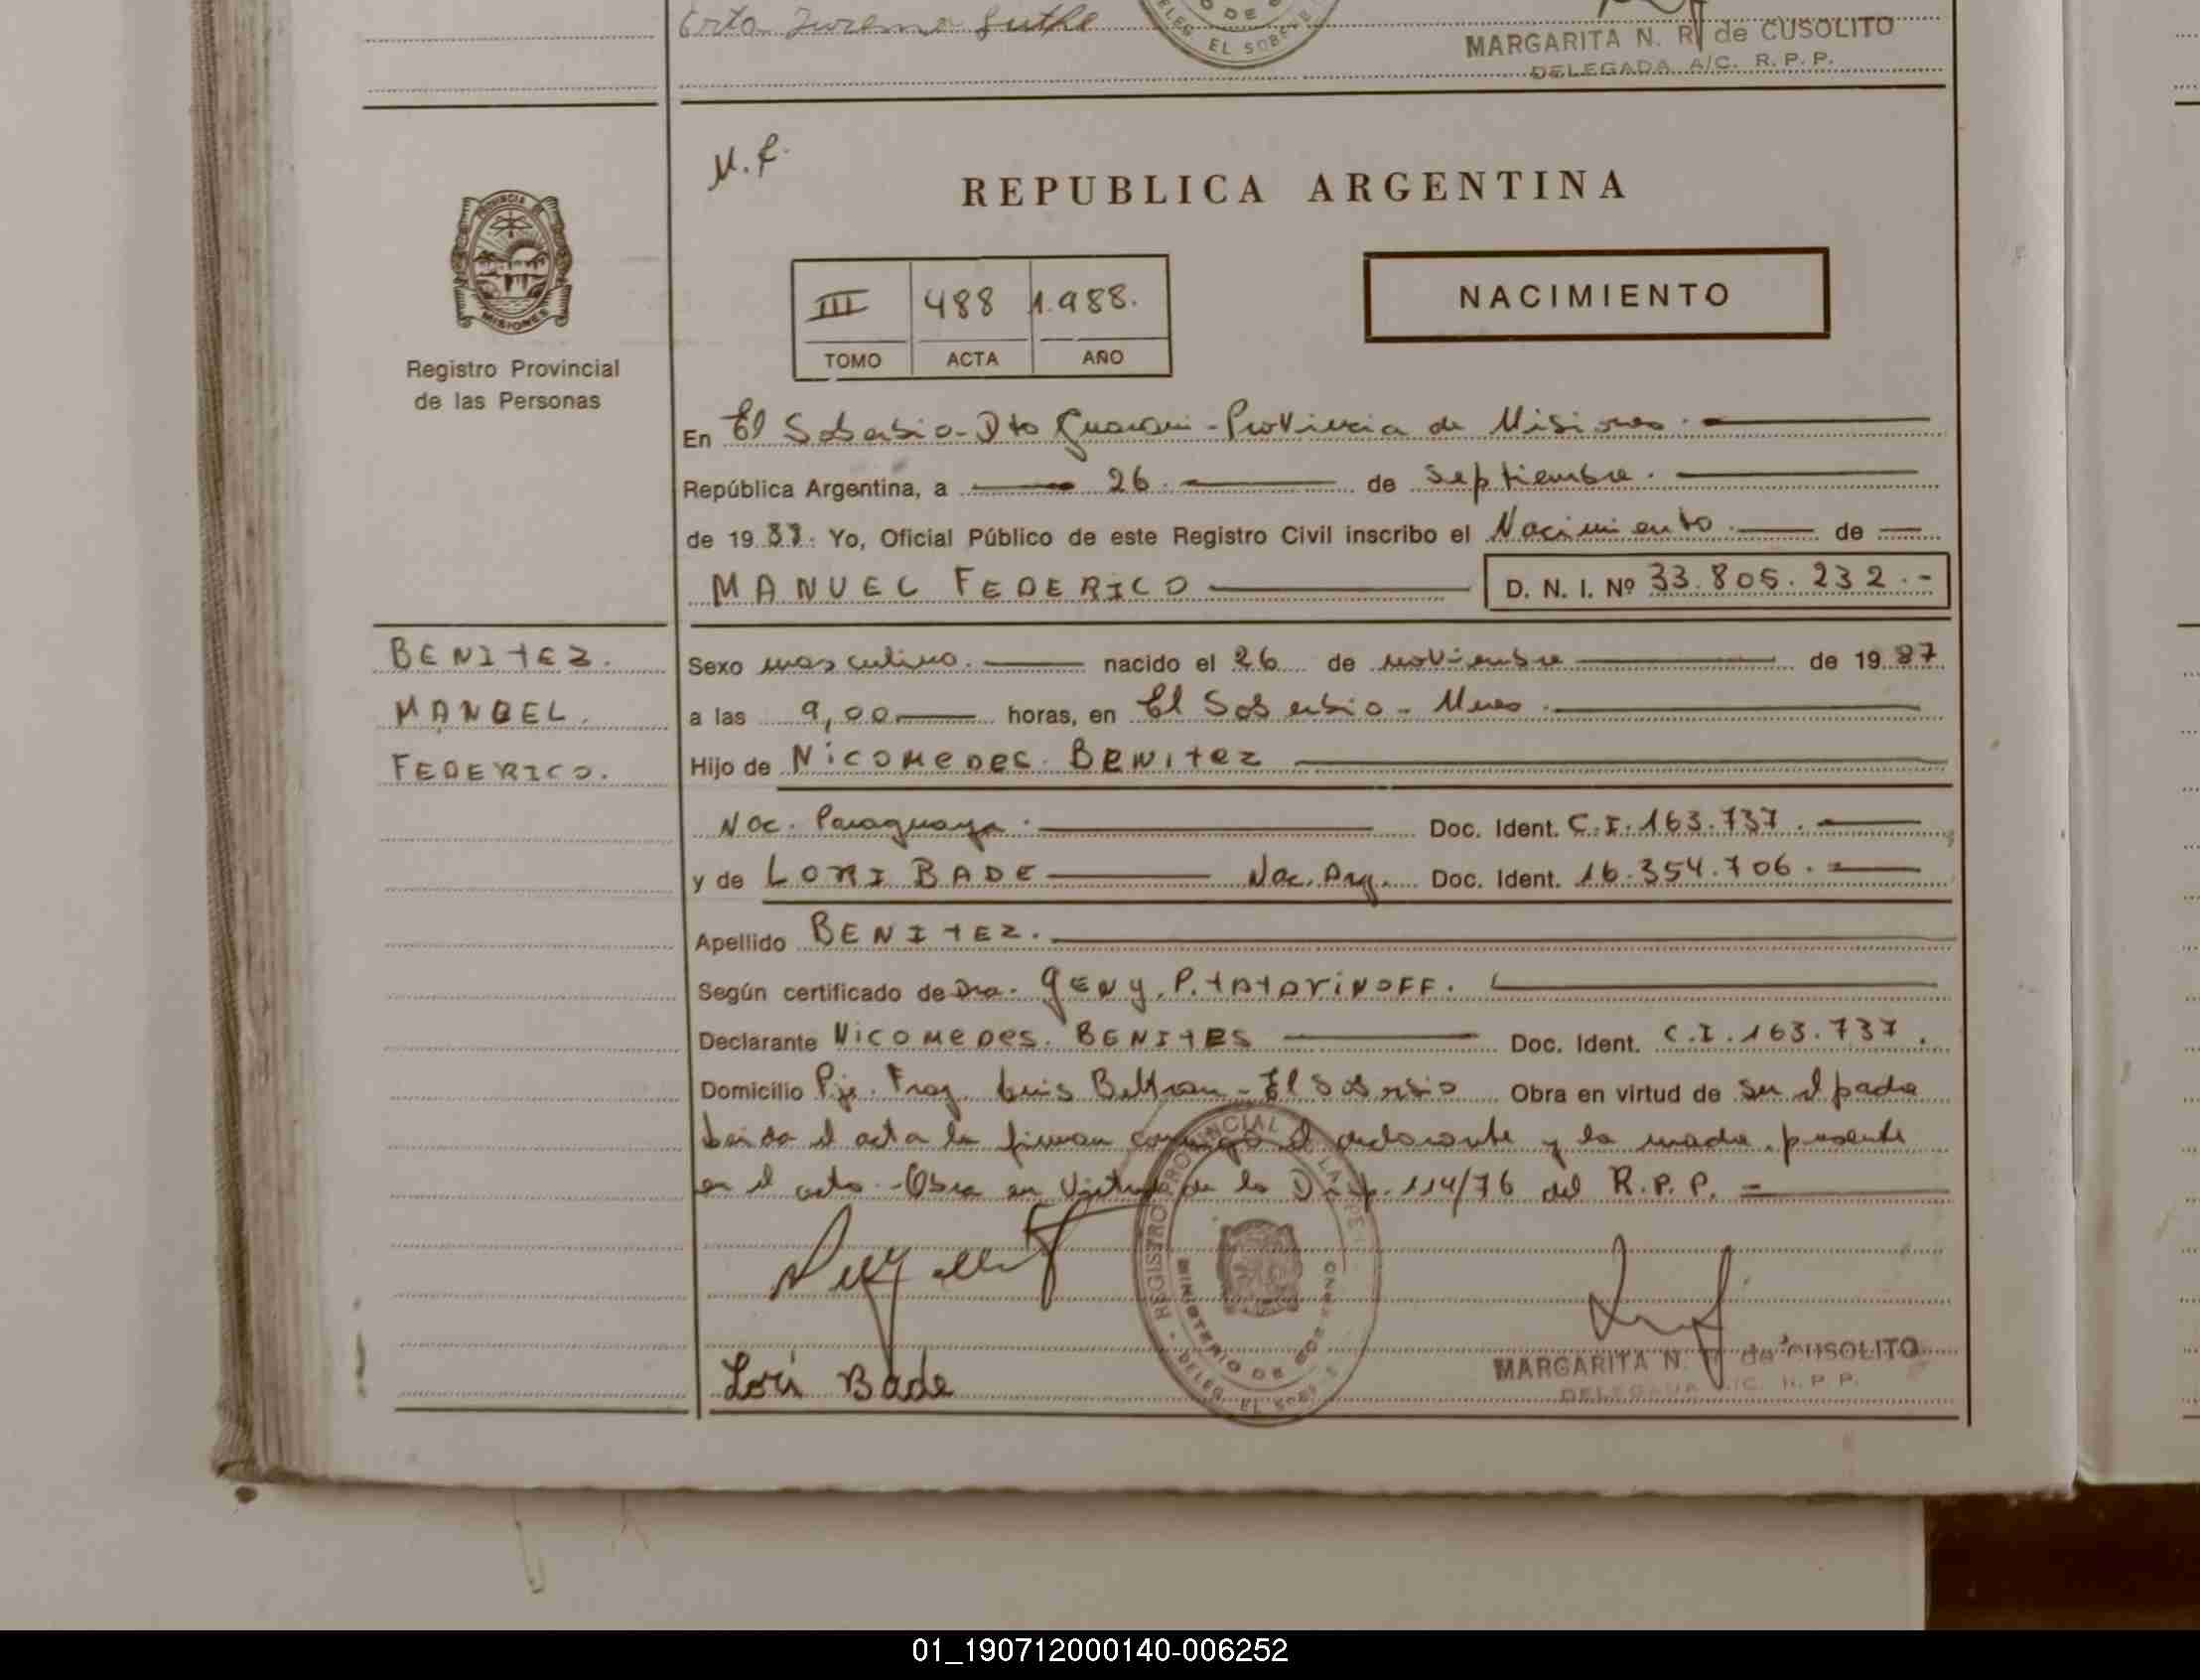 MARGARITA N. R. de CUSOLITO
DELEGADA A/C. R. P. P.
PROVINCIA DE
MISIONES
Registro Provincial
de las Personas
REPUBLICA ARGENTINA
III 488 1.988.
TOMO ACTA AÑO
NACIMIENTO
En El Soberbio - Dto Guarani - Provincia de Misiones.
República Argentina, a 26. de septiembre.
de 19 88. Yo, Oficial Público de este Registro Civil inscribo el Nacimiento. de
MANUEL FEDERICO D. N. I. Nº 33.805.232.-
BENITEZ.
MANUEL.
FEDERICO.
Sexo masculino. nacido el 26 de noviembre de 19 87
a las 9,00 horas, en El Soberbio - Mnes.
Hijo de Nicomedes. Benitez
Nac. Paraguaya. Doc. Ident. C.I. 163.737.
y de LORI BADE Nac. Arg. Doc. Ident. 16.354.706.
Apellido BENITEZ.
Según certificado de Dra. Geny. P. tatarinoff.
Declarante Nicomedes. BENITES Doc. Ident. C.I. 163.737.
Domicilio Pje. Fray Luis Beltran - El Soberbio Obra en virtud de ser el padre
Leida el acta la firman conmigo el declarante y la madre, presente
en el acto. - Obra en Virtud de la Disp. 114/76 del R.P.P.
REGISTRO PROVINCIAL DE LAS PER
MINISTERIO DE GOBIERNO
DELEG. EL SOBE
Lori Bade
MARGARITA N. R. de CUSOLITO
DELEGADA A/C. R. P. P.
01_190712000140-006252